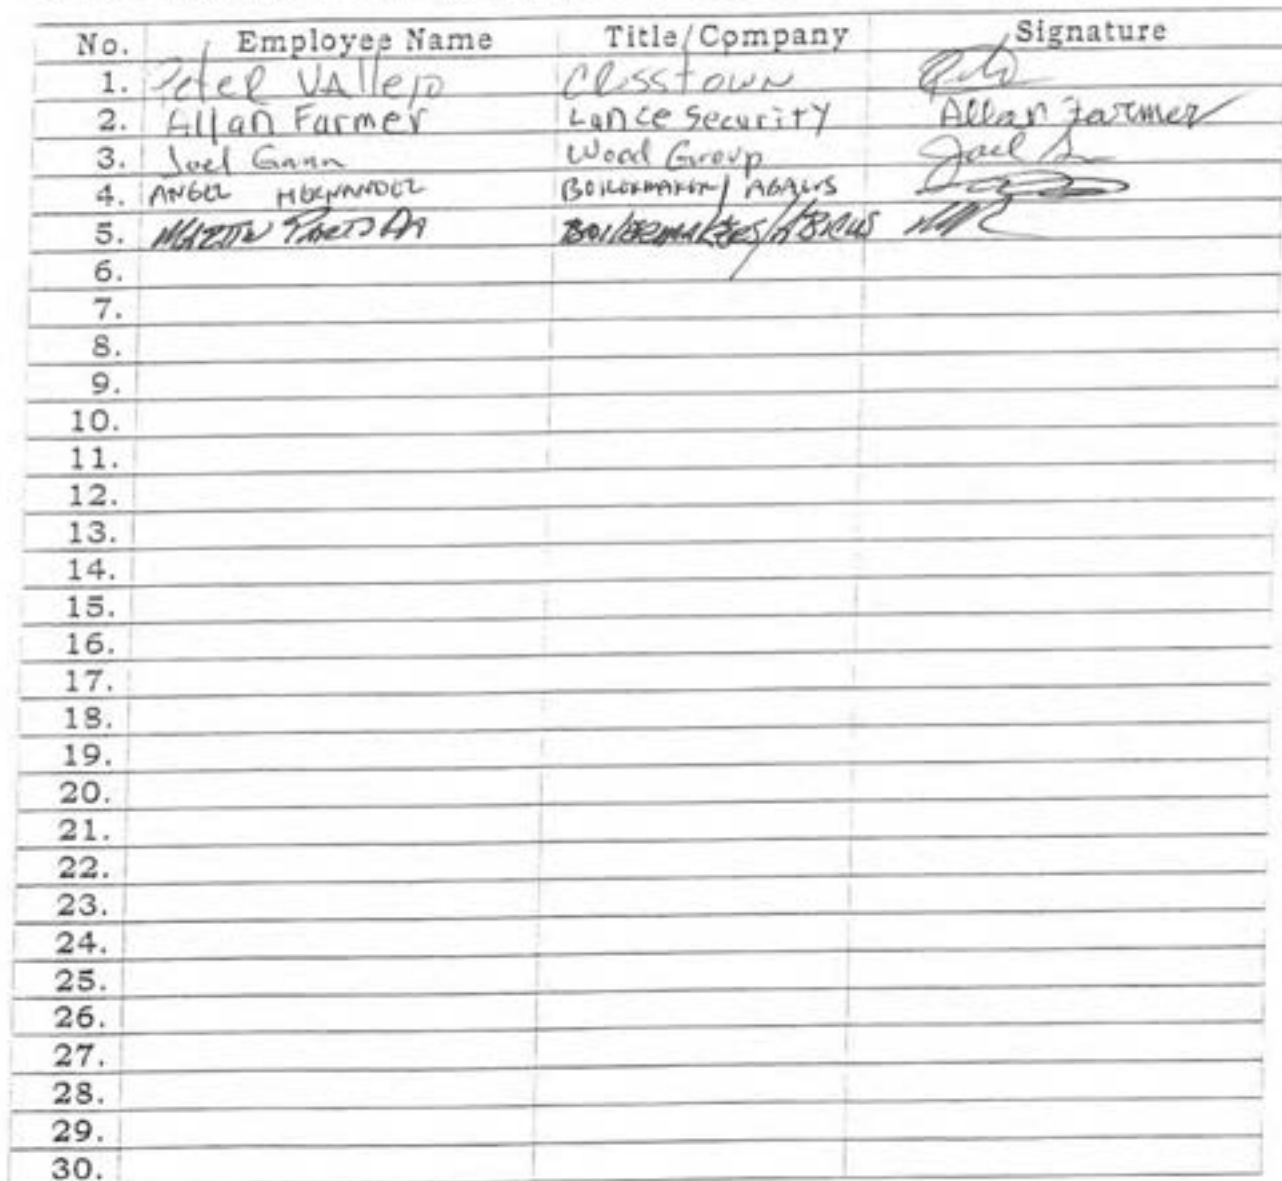 No. Employee Name Title/Company Signature
1. Peter Vallejo
2. Allan Farmer Lance Security Allan Farmer
3. Joel Wood Group Joel
4. ANGEL HERNANDEZ BOILERMAKER/
5. BOILERMAKERS/
6.
7.
8.
9.
10.
11.
12.
13.
14.
15.
16.
17.
18.
19.
20.
21.
22.
23.
24.
25.
26.
27.
28.
29.
30.